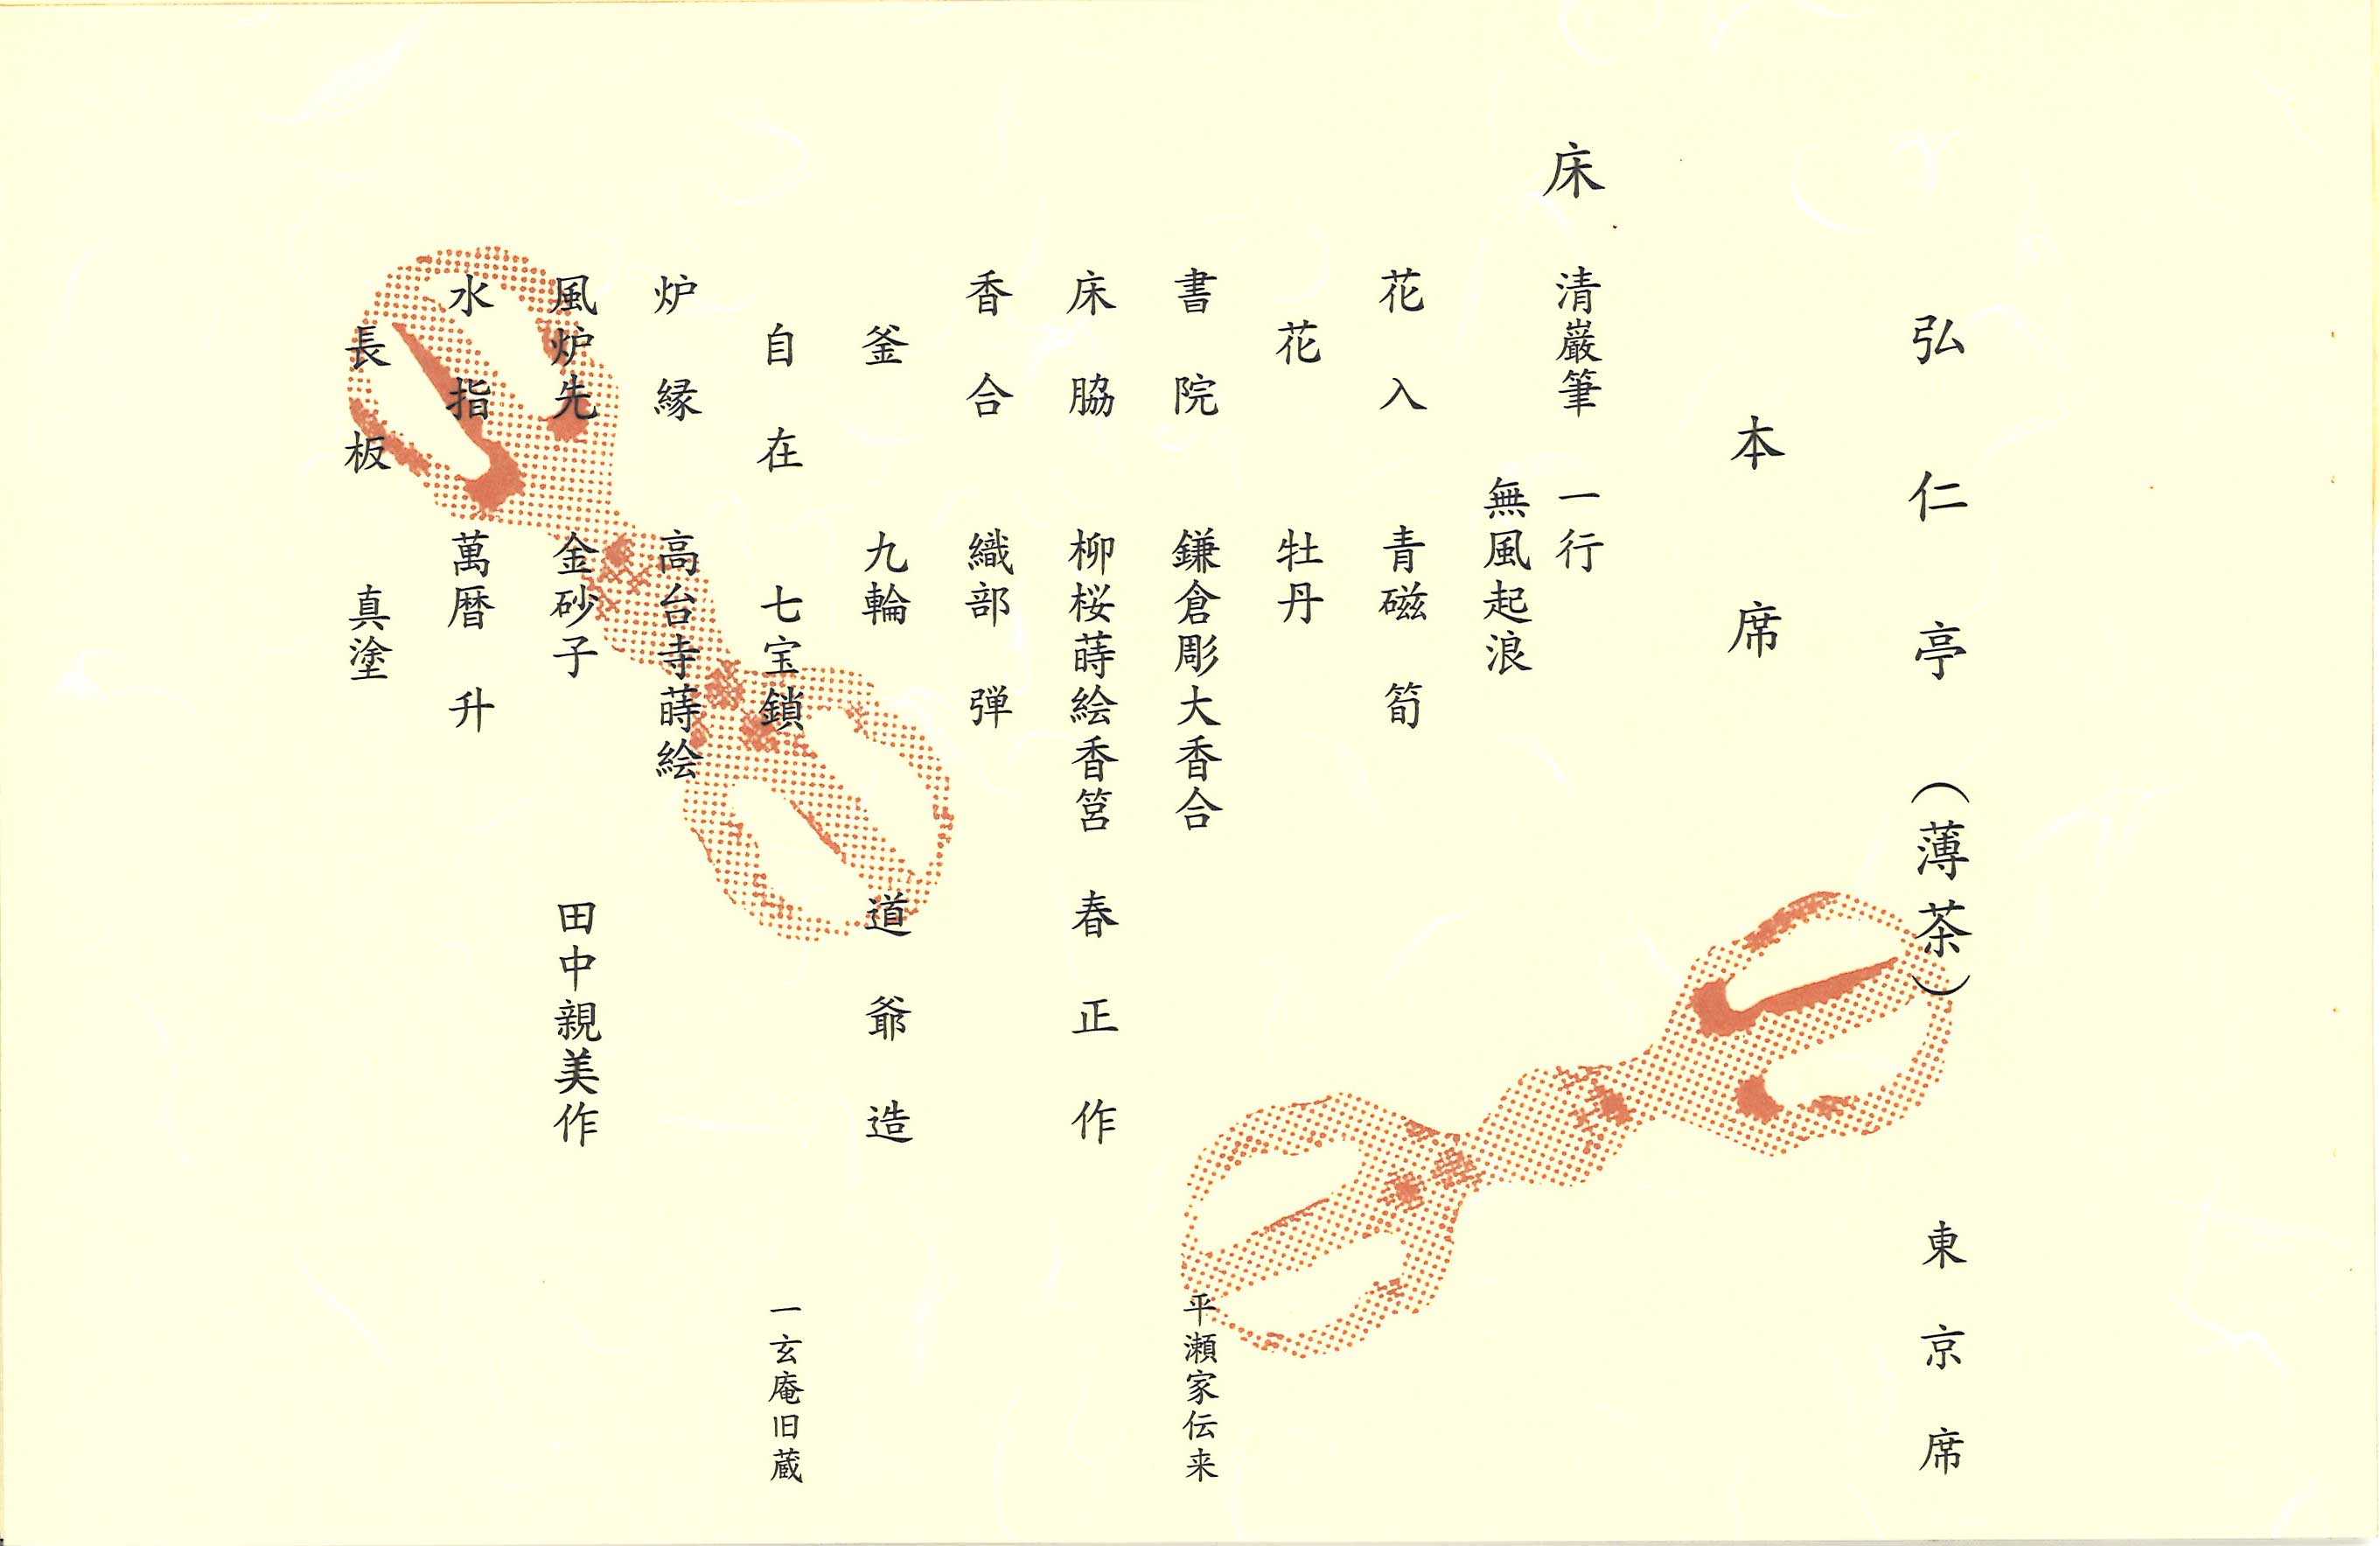 弘仁亭（薄茶）　東京席
本席
床　清巖筆　一行
無風起浪
花入　青磁　筍
花　牡丹
書院　鎌倉彫大香合　平瀬家伝来
床脇　柳桜蒔絵香筥　春正作
香合　織部　弾
釜　九輪　道爺造
自在　七宝鎖　一玄庵旧蔵
炉縁　高台寺蒔絵
風炉先　金砂子　田中親美作
水指　萬暦　升
長板　真塗